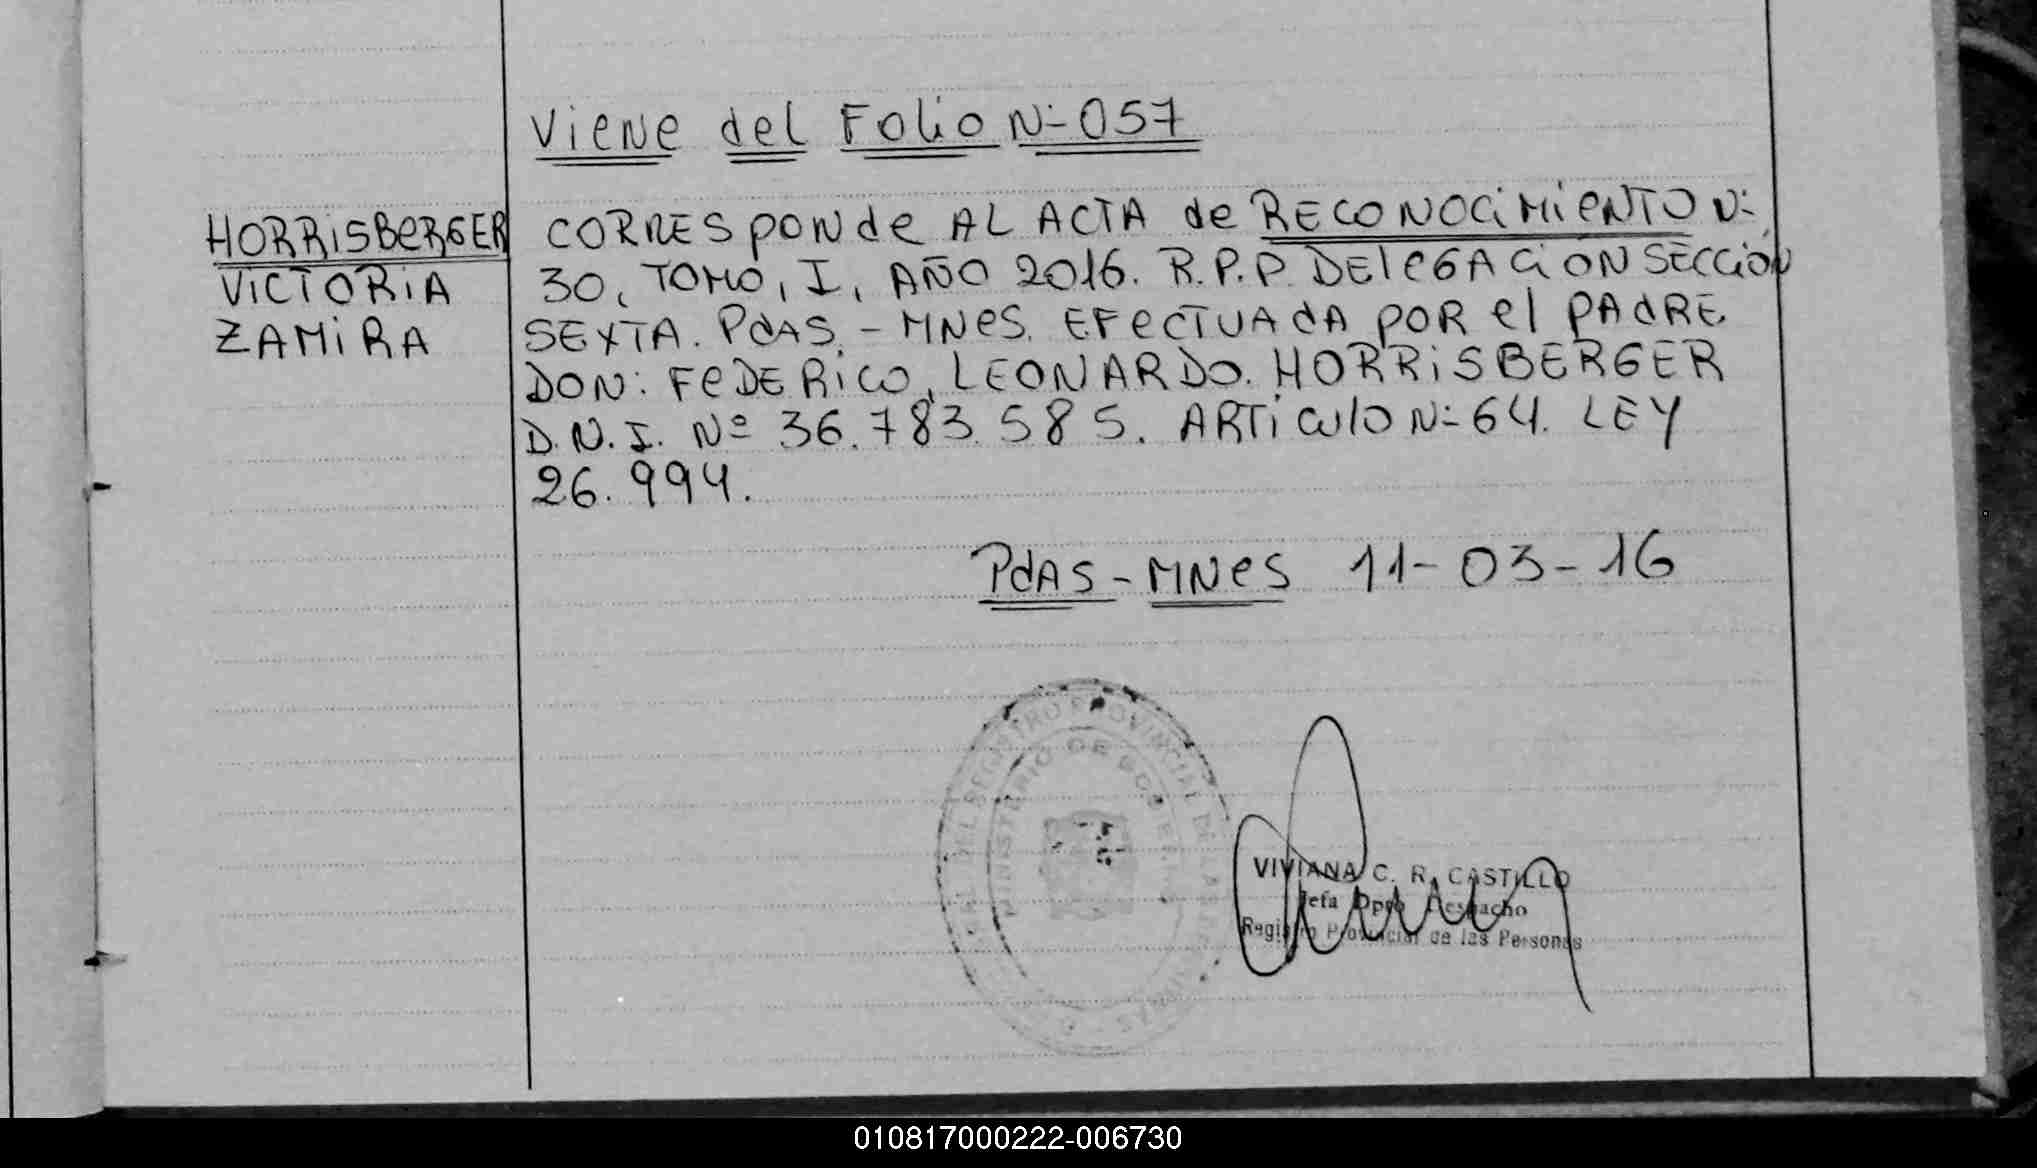 Viene del Folio N-057
HORRISBERGER
VICTORIA
ZAMIRA
CORRESponde AL ACTA de RECONOCIMIENTO N:
30, TOMO, I, AÑO 2016. R.P.P. DELEGACION SECCIÓN
SEXTA. PdAS. - MNES. EFECTUADA POR el PADRE
DON: FEDERICO, LEONARDO. HORRISBERGER
D.N.I. Nº 36.783.585. ARTICULO N-64. LEY
26.994.
PdAS - MNES 11-03-16
REGISTRO PROVINCIAL DE LAS PERSONAS
MINISTERIO DE
VIVIANA C. R. CASTILLO
Jefa Dpto Despacho
Registro Provincial de las Personas
010817000222-006730